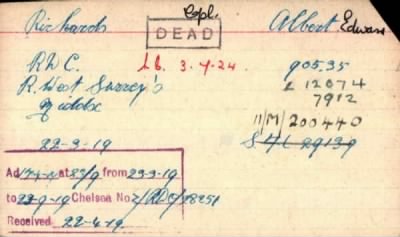 Richards Cpl. Albert Edward
DEAD
R.D.C. d. 3-4-24. 90535
R. West Surrey's L 12074
Middx 7912
11/M/200440
22-3-19
Ad at 8s/9 from 23-3-19
to 22-9-19 Chelsea No. 2/RDC/
Received 22-4-19